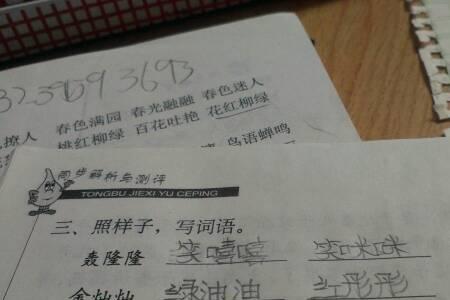 3239593693
春色满园 春光融融 春色迷人
桃红柳绿 百花吐艳 花红柳绿
鸟语蝉鸣
同步解析与测评
TONGBU JIEXI YU CEPING
三、照样子，写词语。
轰隆隆 笑嘻嘻 笑咪咪
金灿灿 绿油油 红彤彤